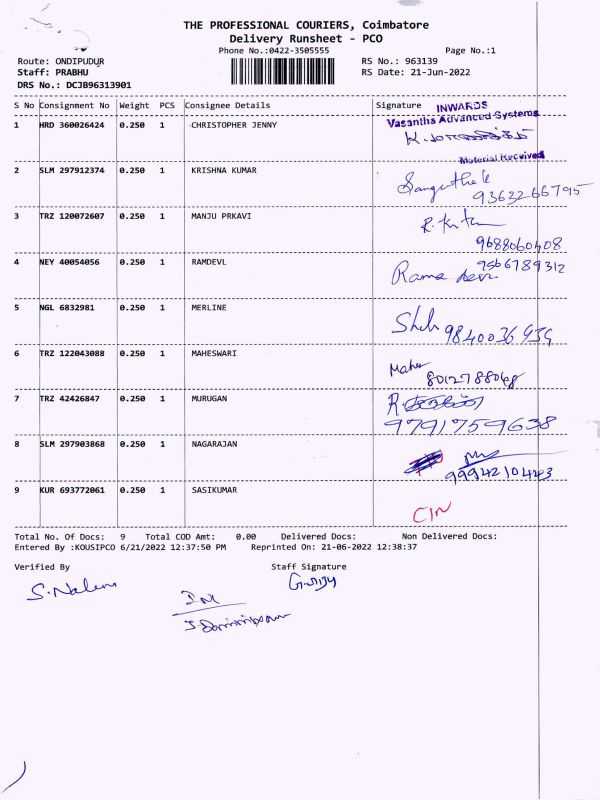 THE PROFESSIONAL COURIERS, Coimbatore
Delivery Runsheet - PCO
Phone No.:0422-3505555 Page No.:1
Route: ONDIPUDUR RS No.: 963139
Staff: PRABHU RS Date: 21-Jun-2022
DRS No.: DCJB96313901
S No Consignment No Weight PCS Consignee Details Signature
INWARDS
Vasantha Advanced Systems
1 HRD 360026424 0.250 1 CHRISTOPHER JENNY
Material Received
2 SLM 297912374 0.250 1 KRISHNA KUMAR
9363266795
3 TRZ 120072607 0.250 1 MANJU PRKAVI
9688060408
4 NEY 40054056 0.250 1 RAMDEVL 9566789312
Rama devi
5 NGL 6832981 0.250 1 MERLINE
6 TRZ 122043088 0.250 1 MAHESWARI
8012788048
7 TRZ 42426847 0.250 1 MURUGAN
9791759638
8 SLM 297903868 0.250 1 NAGARAJAN
9994210443
9 KUR 693772061 0.250 1 SASIKUMAR
Total No. Of Docs: 9 Total COD Amt: 0.00 Delivered Docs: Non Delivered Docs:
Entered By :KOUSIPCO 6/21/2022 12:37:50 PM Reprinted On: 21-06-2022 12:38:37
Verified By Staff Signature